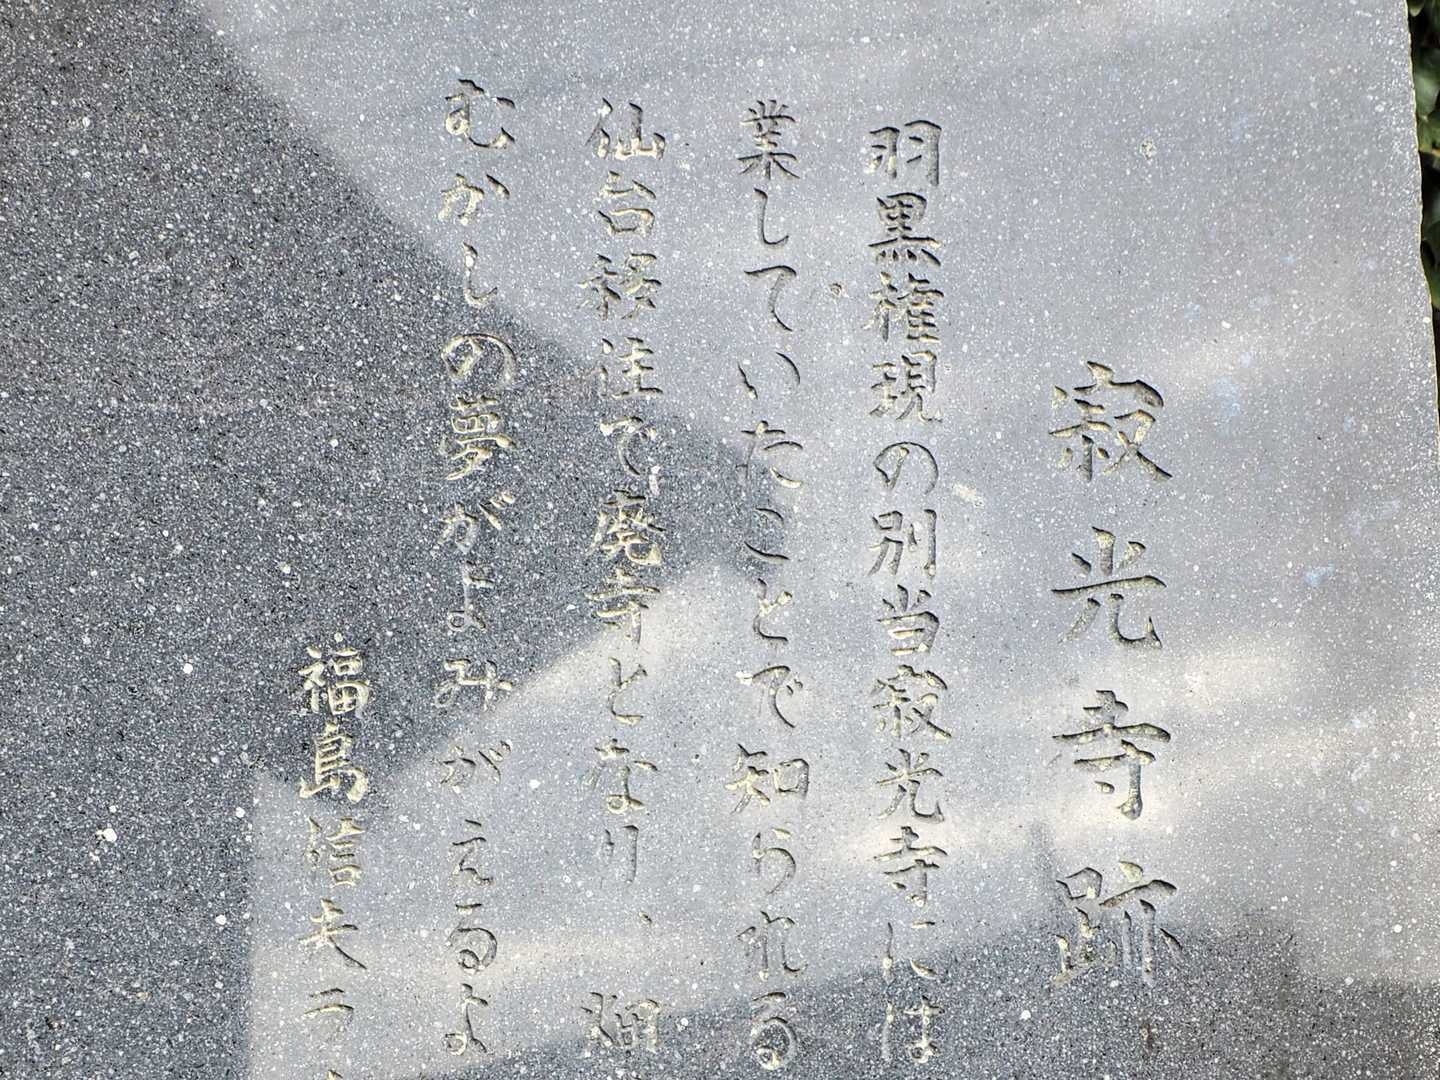 寂光寺跡
羽黒権現の別当寂光寺には
業していたことで知られる
仙台移住で廃寺となり、畑
むかしの夢がよみがえるよ
福島信夫ラ